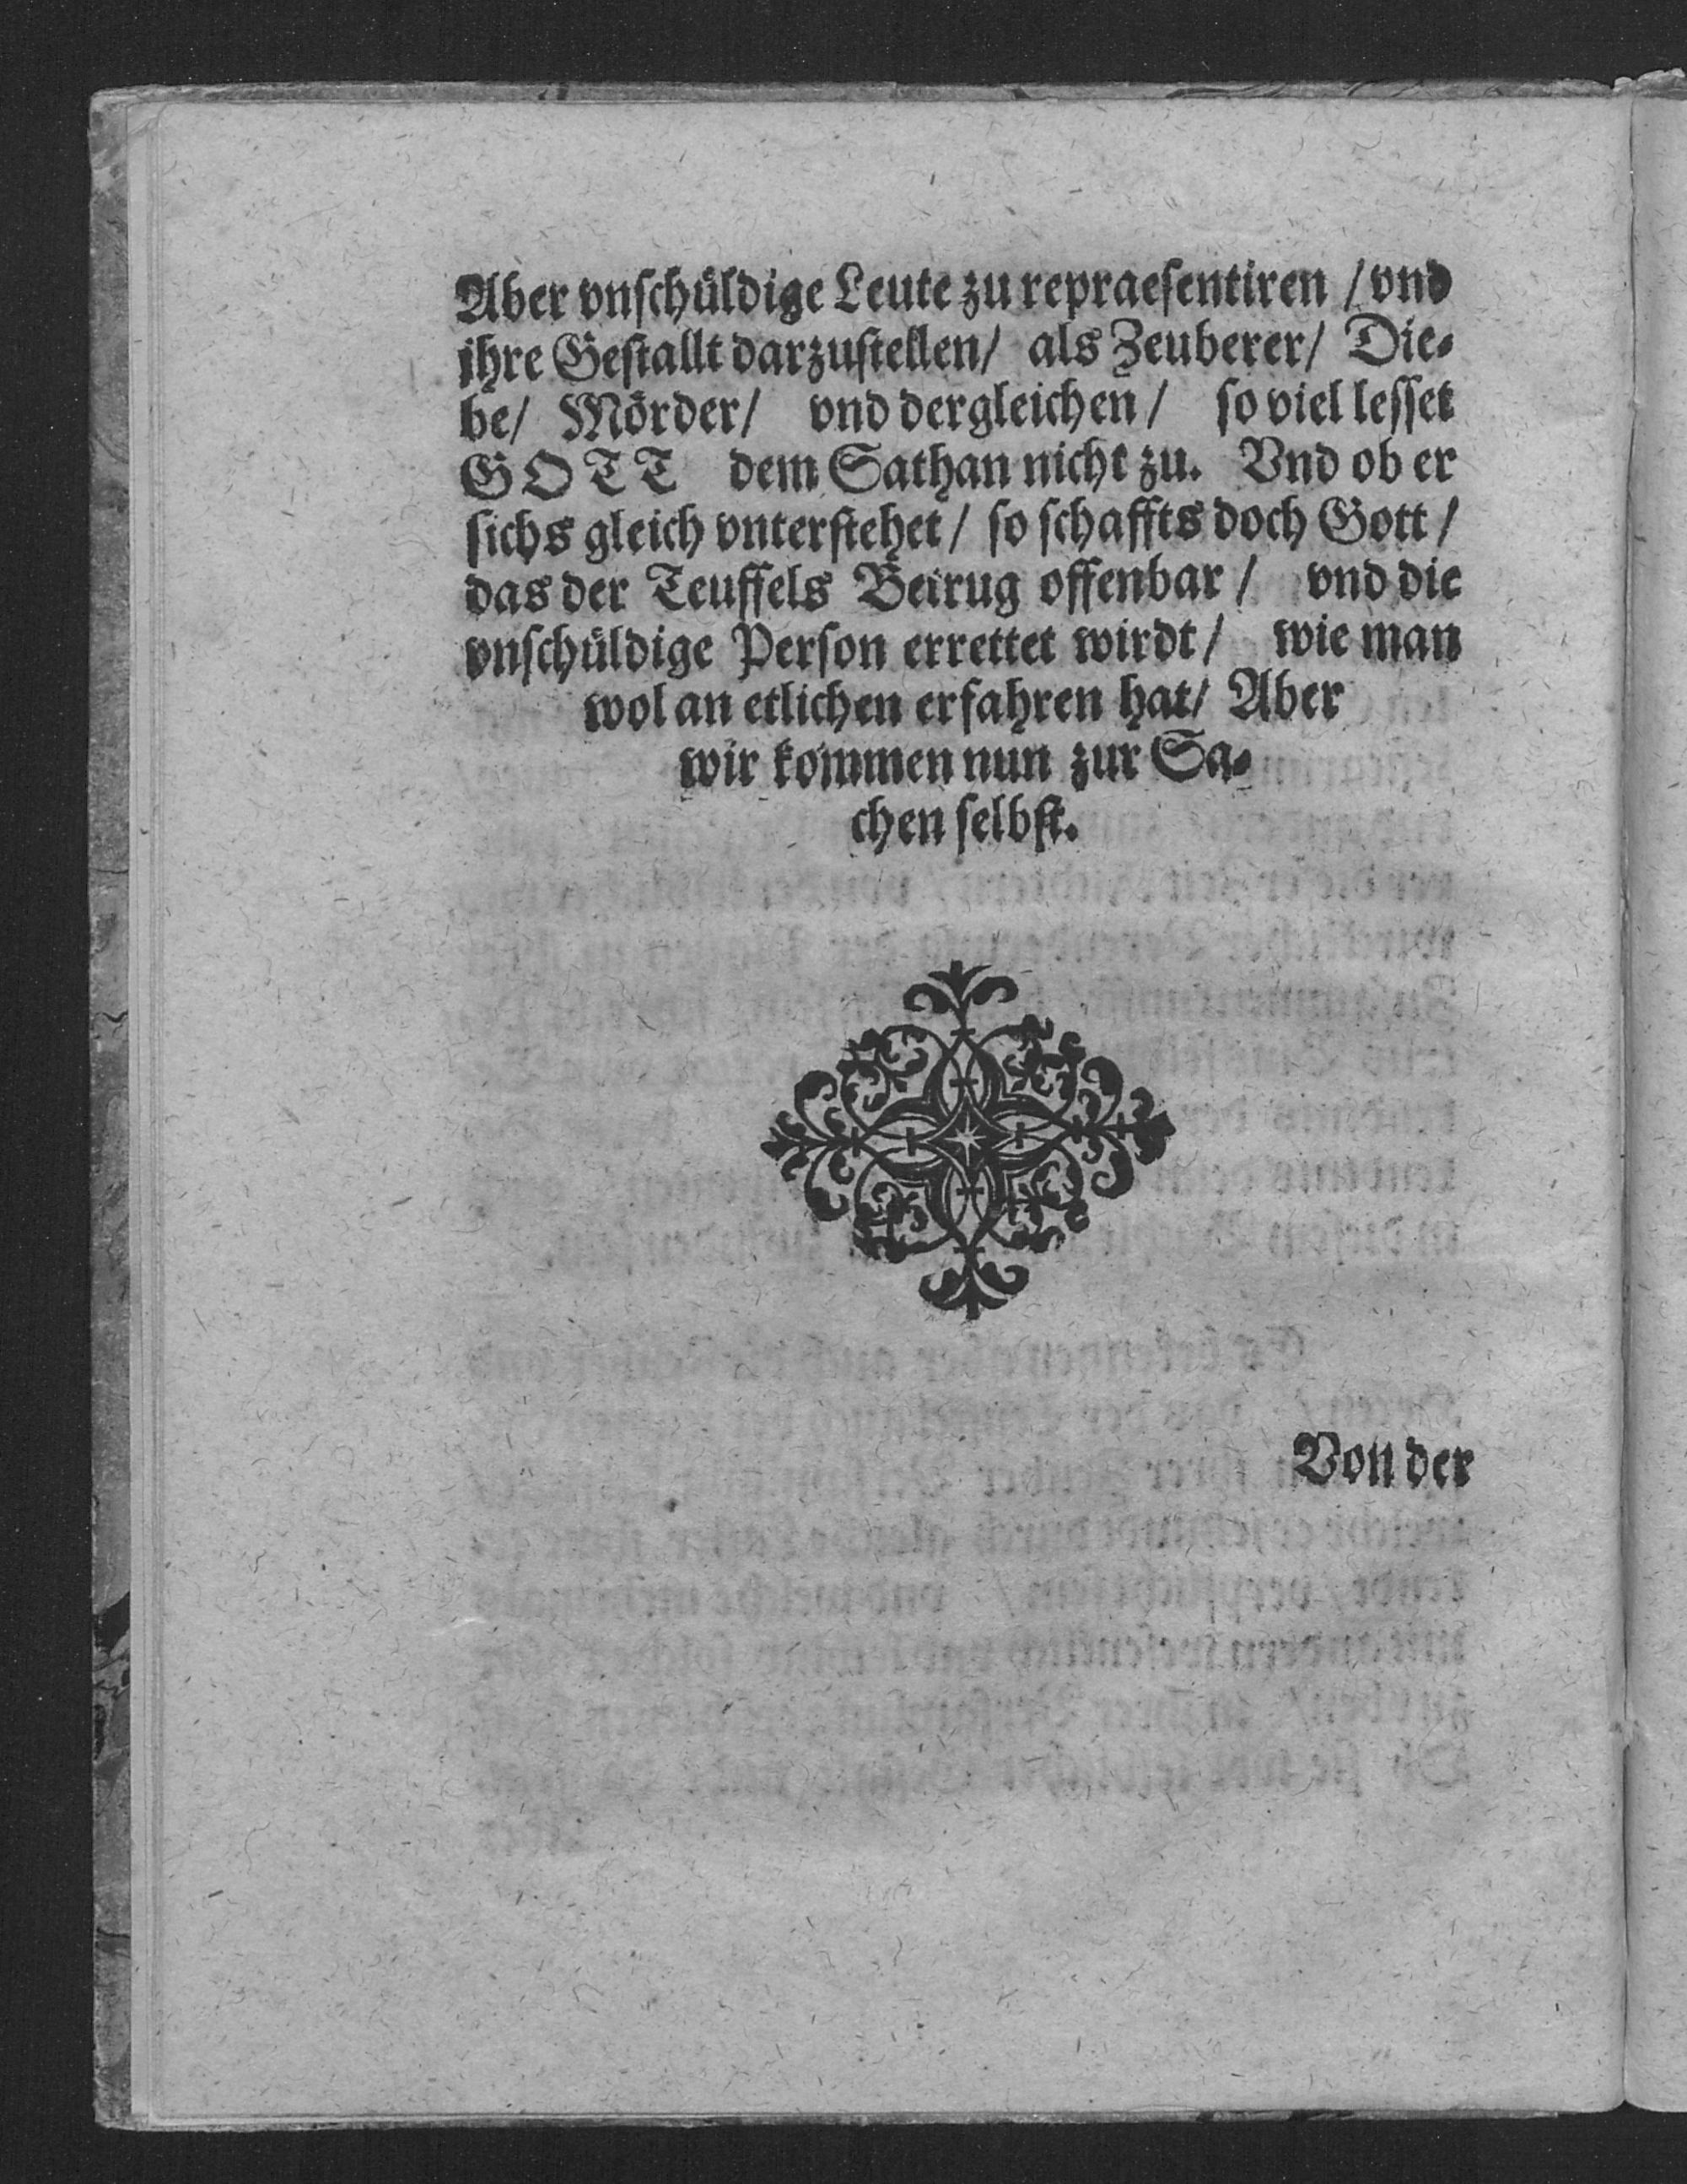 Aber vnſchuͤldige Leute zu repraeſentiren / vnd
ihre Geſtallt darzuſtellen/ als Zeuberer/ Die⸗
be/ Moͤrder/ vnd dergleichen / ſo viel leſſet
GOTT dem Sathan nicht zu. Vnd ob er
ſichs gleich vnterſtehet / ſo ſchaffts doch Gott /
das der Teuffels Betrug offenbar / vnd die
vnſchuͤldige Perſon errettet wirdt / wie man
wol an etlichen erfahren hat/ Aber
wir kommen nun zur Sa⸗
chen ſelbſt.
Von der